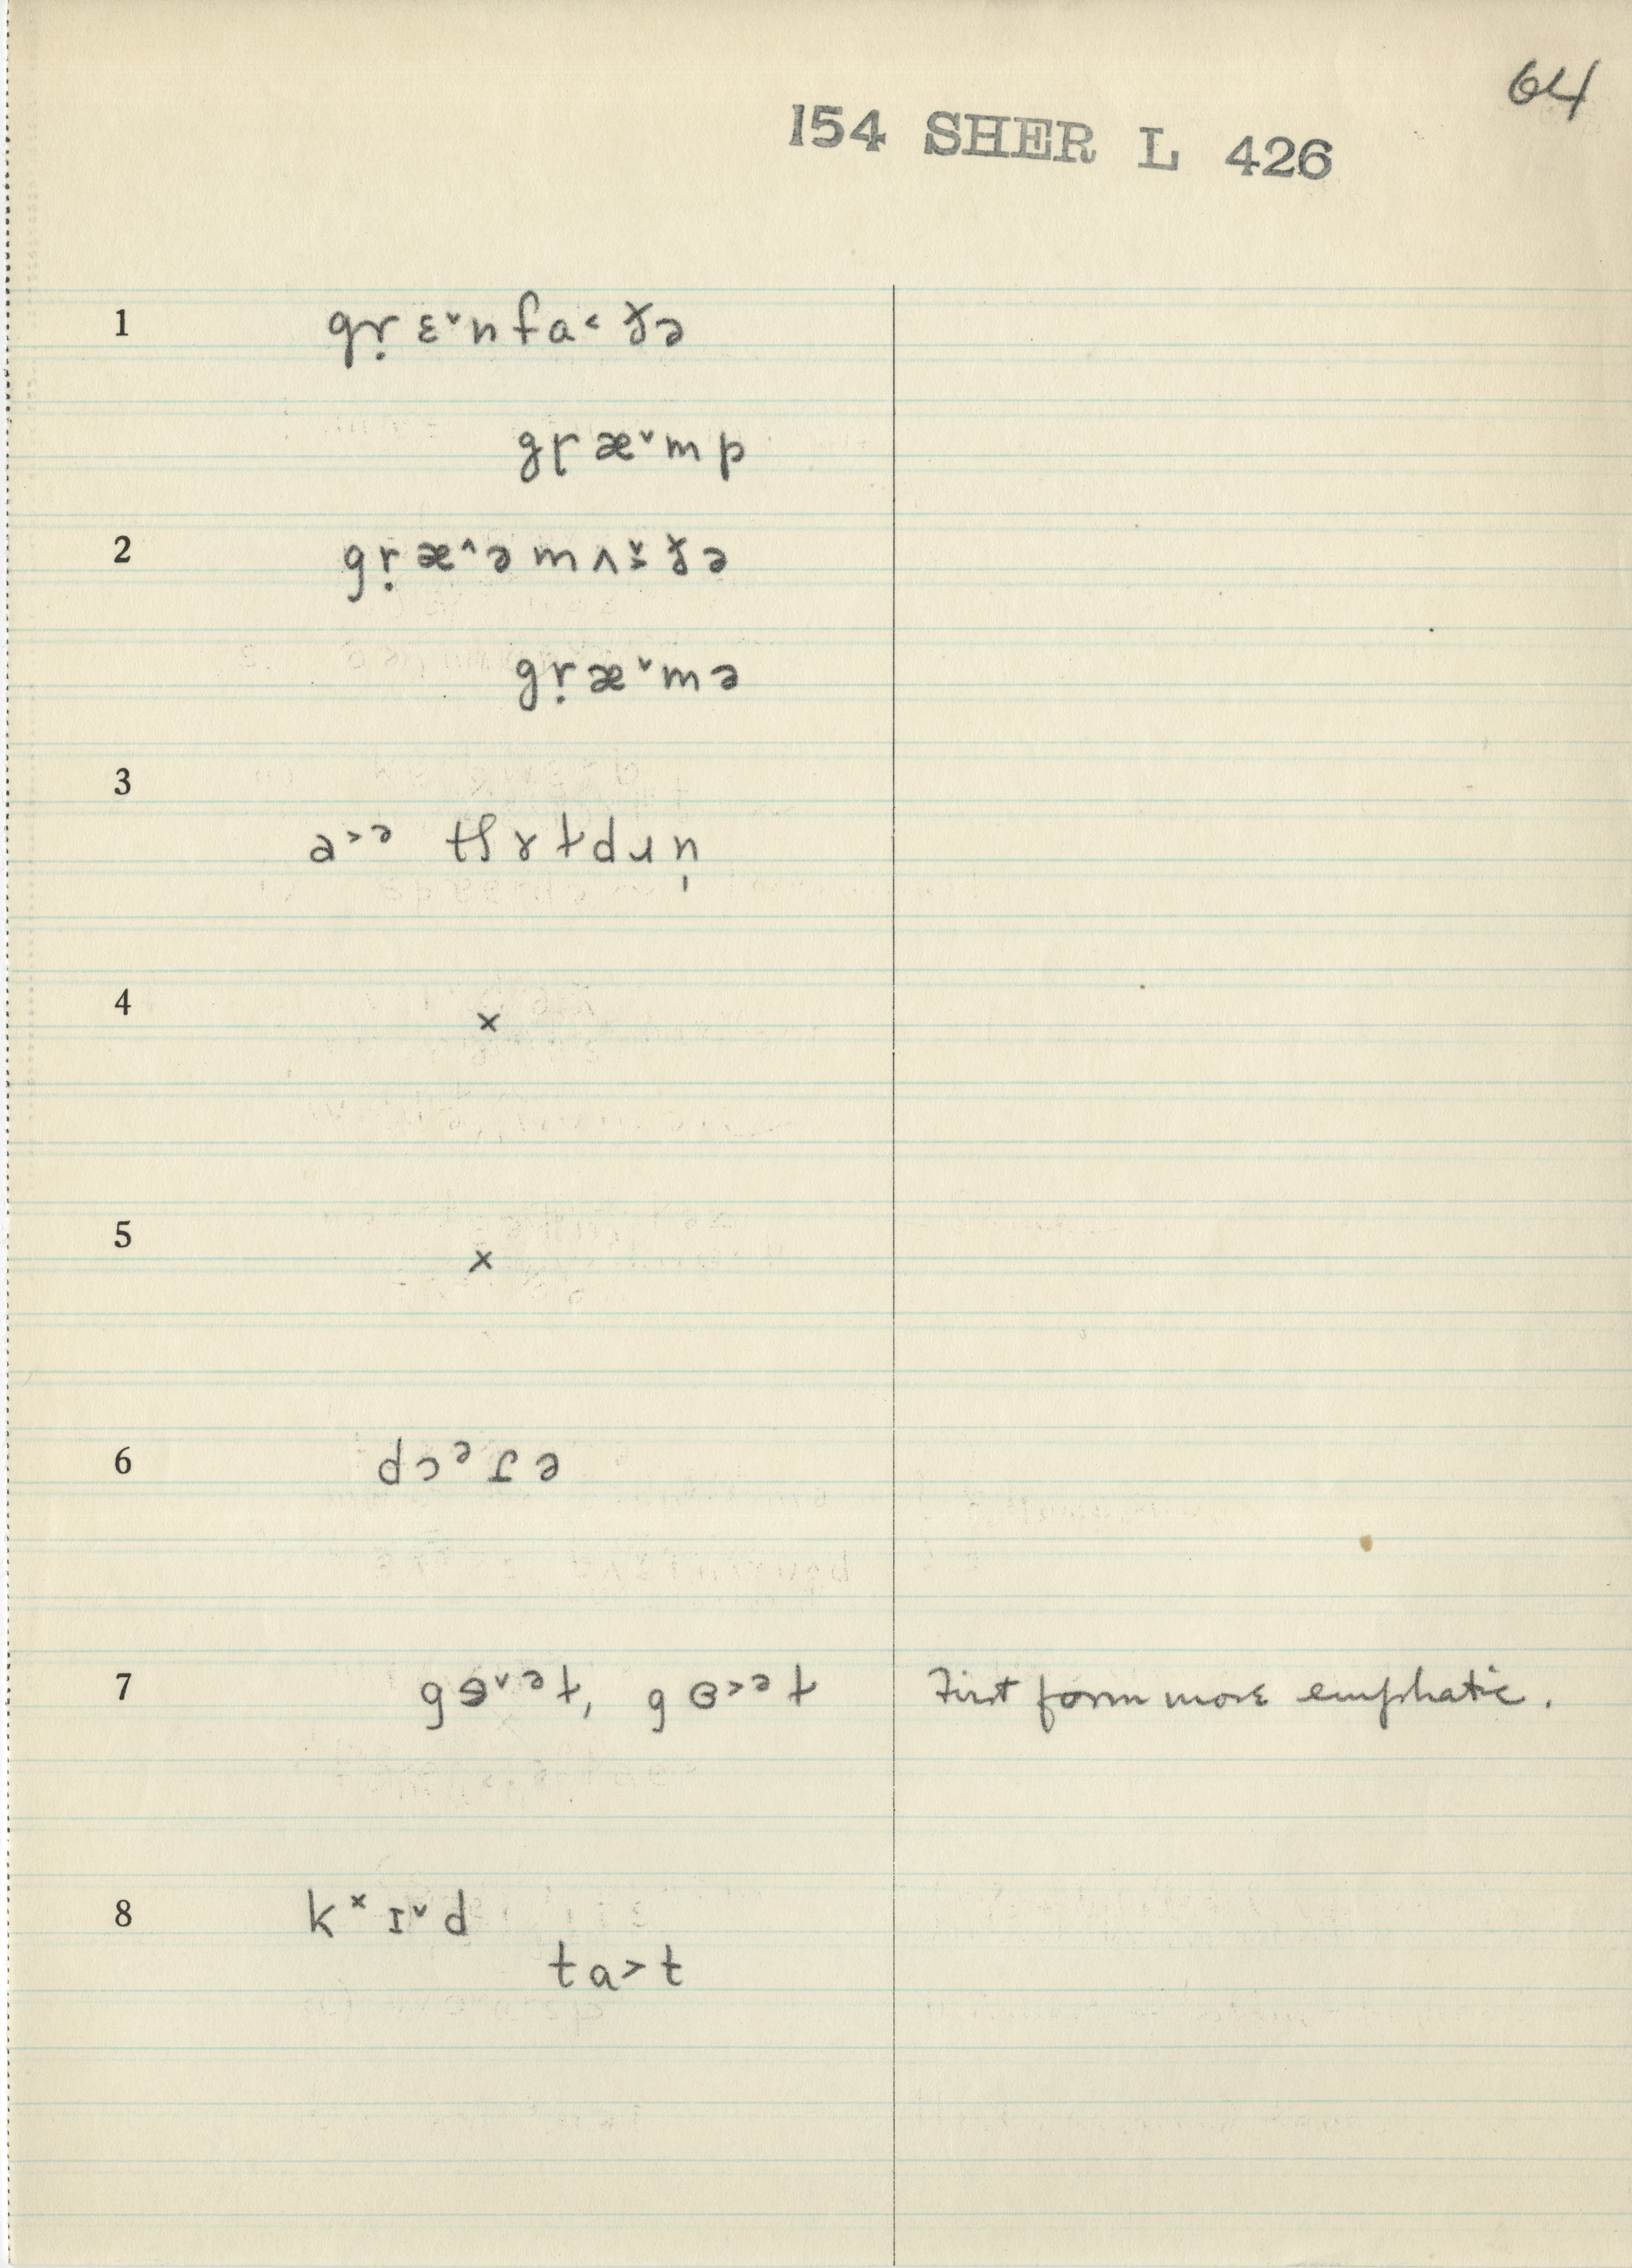 64
154 SHER L 426
1 gṛ ɛ˅n fa˂ ɤ̵ə
gɽ æ˅m p
2 gṛ æ˄ə m ʌ ɤ̵ə
gṛ æ˅m ə
3
ɑ˃ə tʃɤɫdɹn̩
4 ×
5 ×
6 dɔᵊɾə
7 gɵ˅ᵊt, gɵ˃ᵊt First form more emphatic.
8 kˣɪ˅d
ta˃t